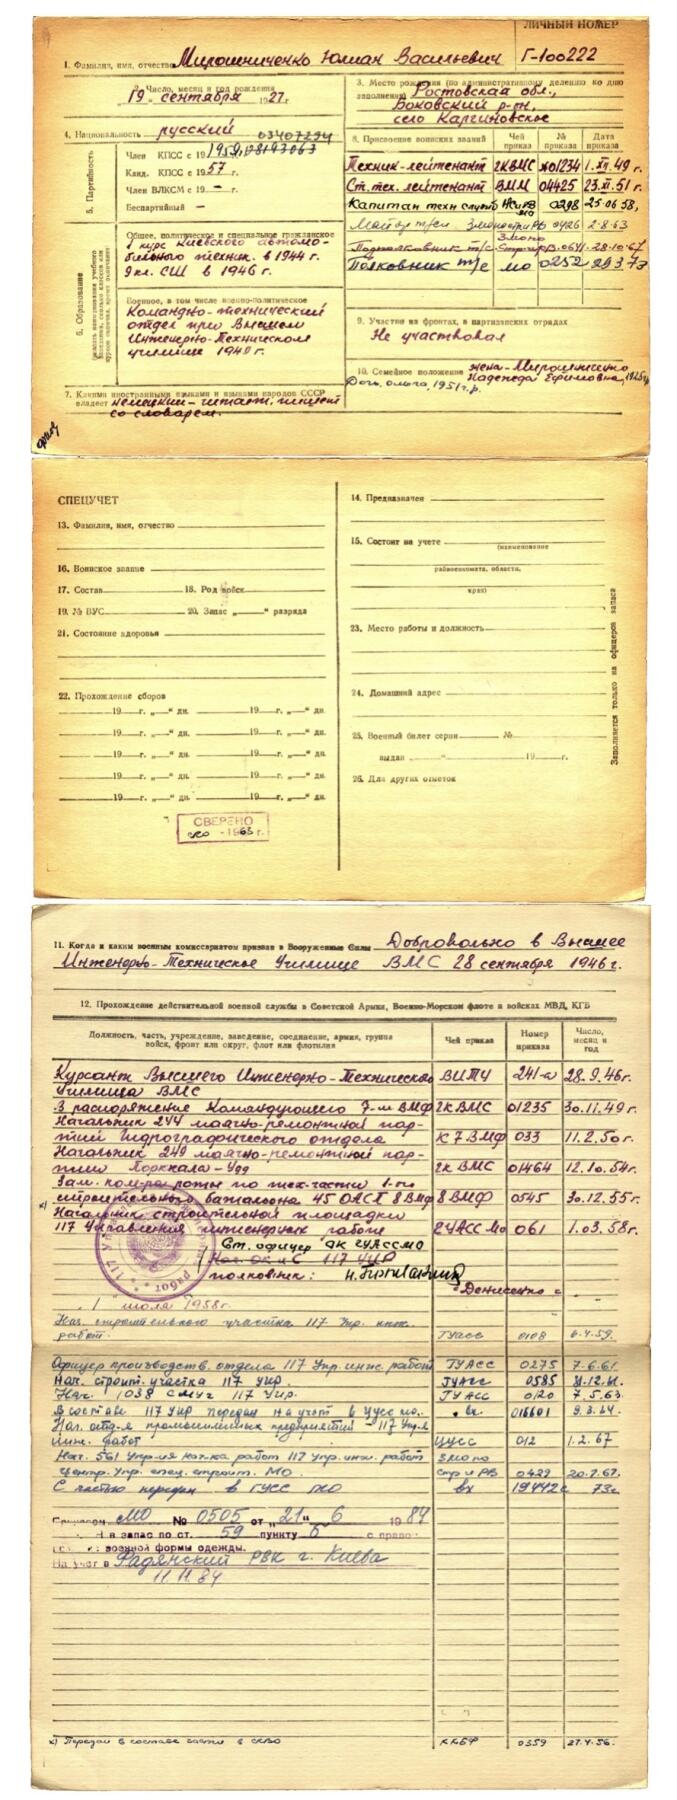 ЛИЧНЫЙ НОМЕР
1. Фамилия, имя, отчество Мирошниченко Юлиан Васильевич Г-100222
2. Число, месяц и год рождения
"19" сентября 1927 г.
4. Национальность русский
03407294
5. Партийность
Член КПСС с 1959, 08193063
Канд. КПСС с 1957 г.
Член ВЛКСМ с 19 — г.
Беспартийный —
6. Образование
Общее, политическое и специальное гражданское
1 курс Киевского автомо-
бильного техник. в 1944 г.
9 кл. СШ в 1946 г.
Военное, в том числе военно-политическое
Командно-технический
отдел при Высшем
Инженерно-Техническом
училище 1949 г.
7. Какими иностранными языками и языками народов СССР
владеет немецкий - читает, пишет
со словарем.
3. Место рождения (по административному делению ко дню
заполнения) Ростовская обл.,
Боковский р-он,
село Каргиновское
8. Присвоение воинских званий Чей приказа № приказа Дата приказа
Техник-лейтенант ГКВМС №01234 1.XII.49 г.
Ст. тех. лейтенант ВММ 04425 23.XI.51 г.
Капитан техн службы 0298 25.06.58,
Майор т/сл 0426 2.8.63
Подполковник т/с 0641 28.10.67
Полковник т/с МО 0252 29.3.73
9. Участие на фронтах, в партизанских отрядах
Не участвовал
10. Семейное положение жена - Мирошниченко
Надежда Ефимовна, 1925 г.р.
Дочь Ольга, 1951 г.р.
СПЕЦУЧЕТ
13. Фамилия, имя, отчество
16. Воинское звание
17. Состав 18. Род войск
19. № ВУС 20. Запас „ “ разряда
21. Состояние здоровья
22. Прохождение сборов
19 г. „ “ дн. 19 г. „ “ дн.
19 г. „ “ дн. 19 г. „ “ дн.
19 г. „ “ дн. 19 г. „ “ дн.
19 г. „ “ дн. 19 г. „ “ дн.
19 г. „ “ дн. 19 г. „ “ дн.
СВЕРЕНО
1963 г.
14. Предназначен
15. Состоит на учете
(наименование
райвоенкомата, области,
края)
23. Место работы и должность
24. Домашний адрес
25. Военный билет серии №
выдан „ “ 19 г.
26. Для других отметок
Заполняется только на офицеров запаса
11. Когда и каким военным комиссариатом призван в Вооруженные Силы Добровольно в Высшее
Инженерно-Техническое Училище ВМС 28 сентября 1946 г.
12. Прохождение действительной военной службы в Советской Армии, Военно-Морском флоте и войсках МВД, КГБ
Должность, часть, учреждение, заведение, соединение, армия, группа
войск, фронт или округ, флот или флотилия
Чей приказ Номер приказа Число, месяц и год
Курсант Высшего Инженерно-Технического ВИТУ 241-а 28.9.46 г.
Училища ВМС
В распоряжение Командующего 7-м ВМФ ГК ВМС 01235 30.11.49 г.
Начальник 244 маячно-ремонтной пар-
тией Гидрографического отдела К 7 ВМФ 033 11.2.50 г.
Начальник 249 маячно-ремонтной пар-
тии Порккала-Удд ГК ВМС 01464 12.10.54 г.
Зам. ком-ра роты по тех-части 1-го
х) строительного батальона 45 8 ВМФ 8 ВМФ 0545 30.12.55 г.
Начальник строительной площадки
117 Управления инженерных работ ГУАСС МО 061 1.03.58 г.
Ст. офицер ОК ГУАССМО
117 УИР
полковник:
" 1 " июля 1958 г.
Нач. строительного участка 117 Упр. инж.
работ. ГУАСС 0108 6.4.59.
Офицер производств. отдела 117 Упр. инж. работ ГУАСС 0275 7.6.61
Нач. строит. участка 117 УИР. ГУАСС 0585
Нач. 1038 117 Упр. ГУАСС 0120 7.5.63.
В составе 117 УИР передан на учет в ЦУСС МО. вх. 016601 9.3.64.
Нач. отд-я промышленных предприятий - 117 Упр-я
инж. работ ЦУСС 012 1.2.67
Нач. 561 Упр-ия нач-ка работ 117 Упр. инж. работ ЗМО по
Центр. Упр. спец. строит. МО. Стр и РВ 0429 20.7.67.
С частью передан в ГУСС МО вх 19442с 73 г.
МО № 0505 от „21“ 6 1984
в запас по ст. 59 пункту б с право
военной формы одежды.
На учет в Радянский РВК г. Киева
11.11.84
х) Передан в составе части в СКВО ККБФ 0359 27.4.56.